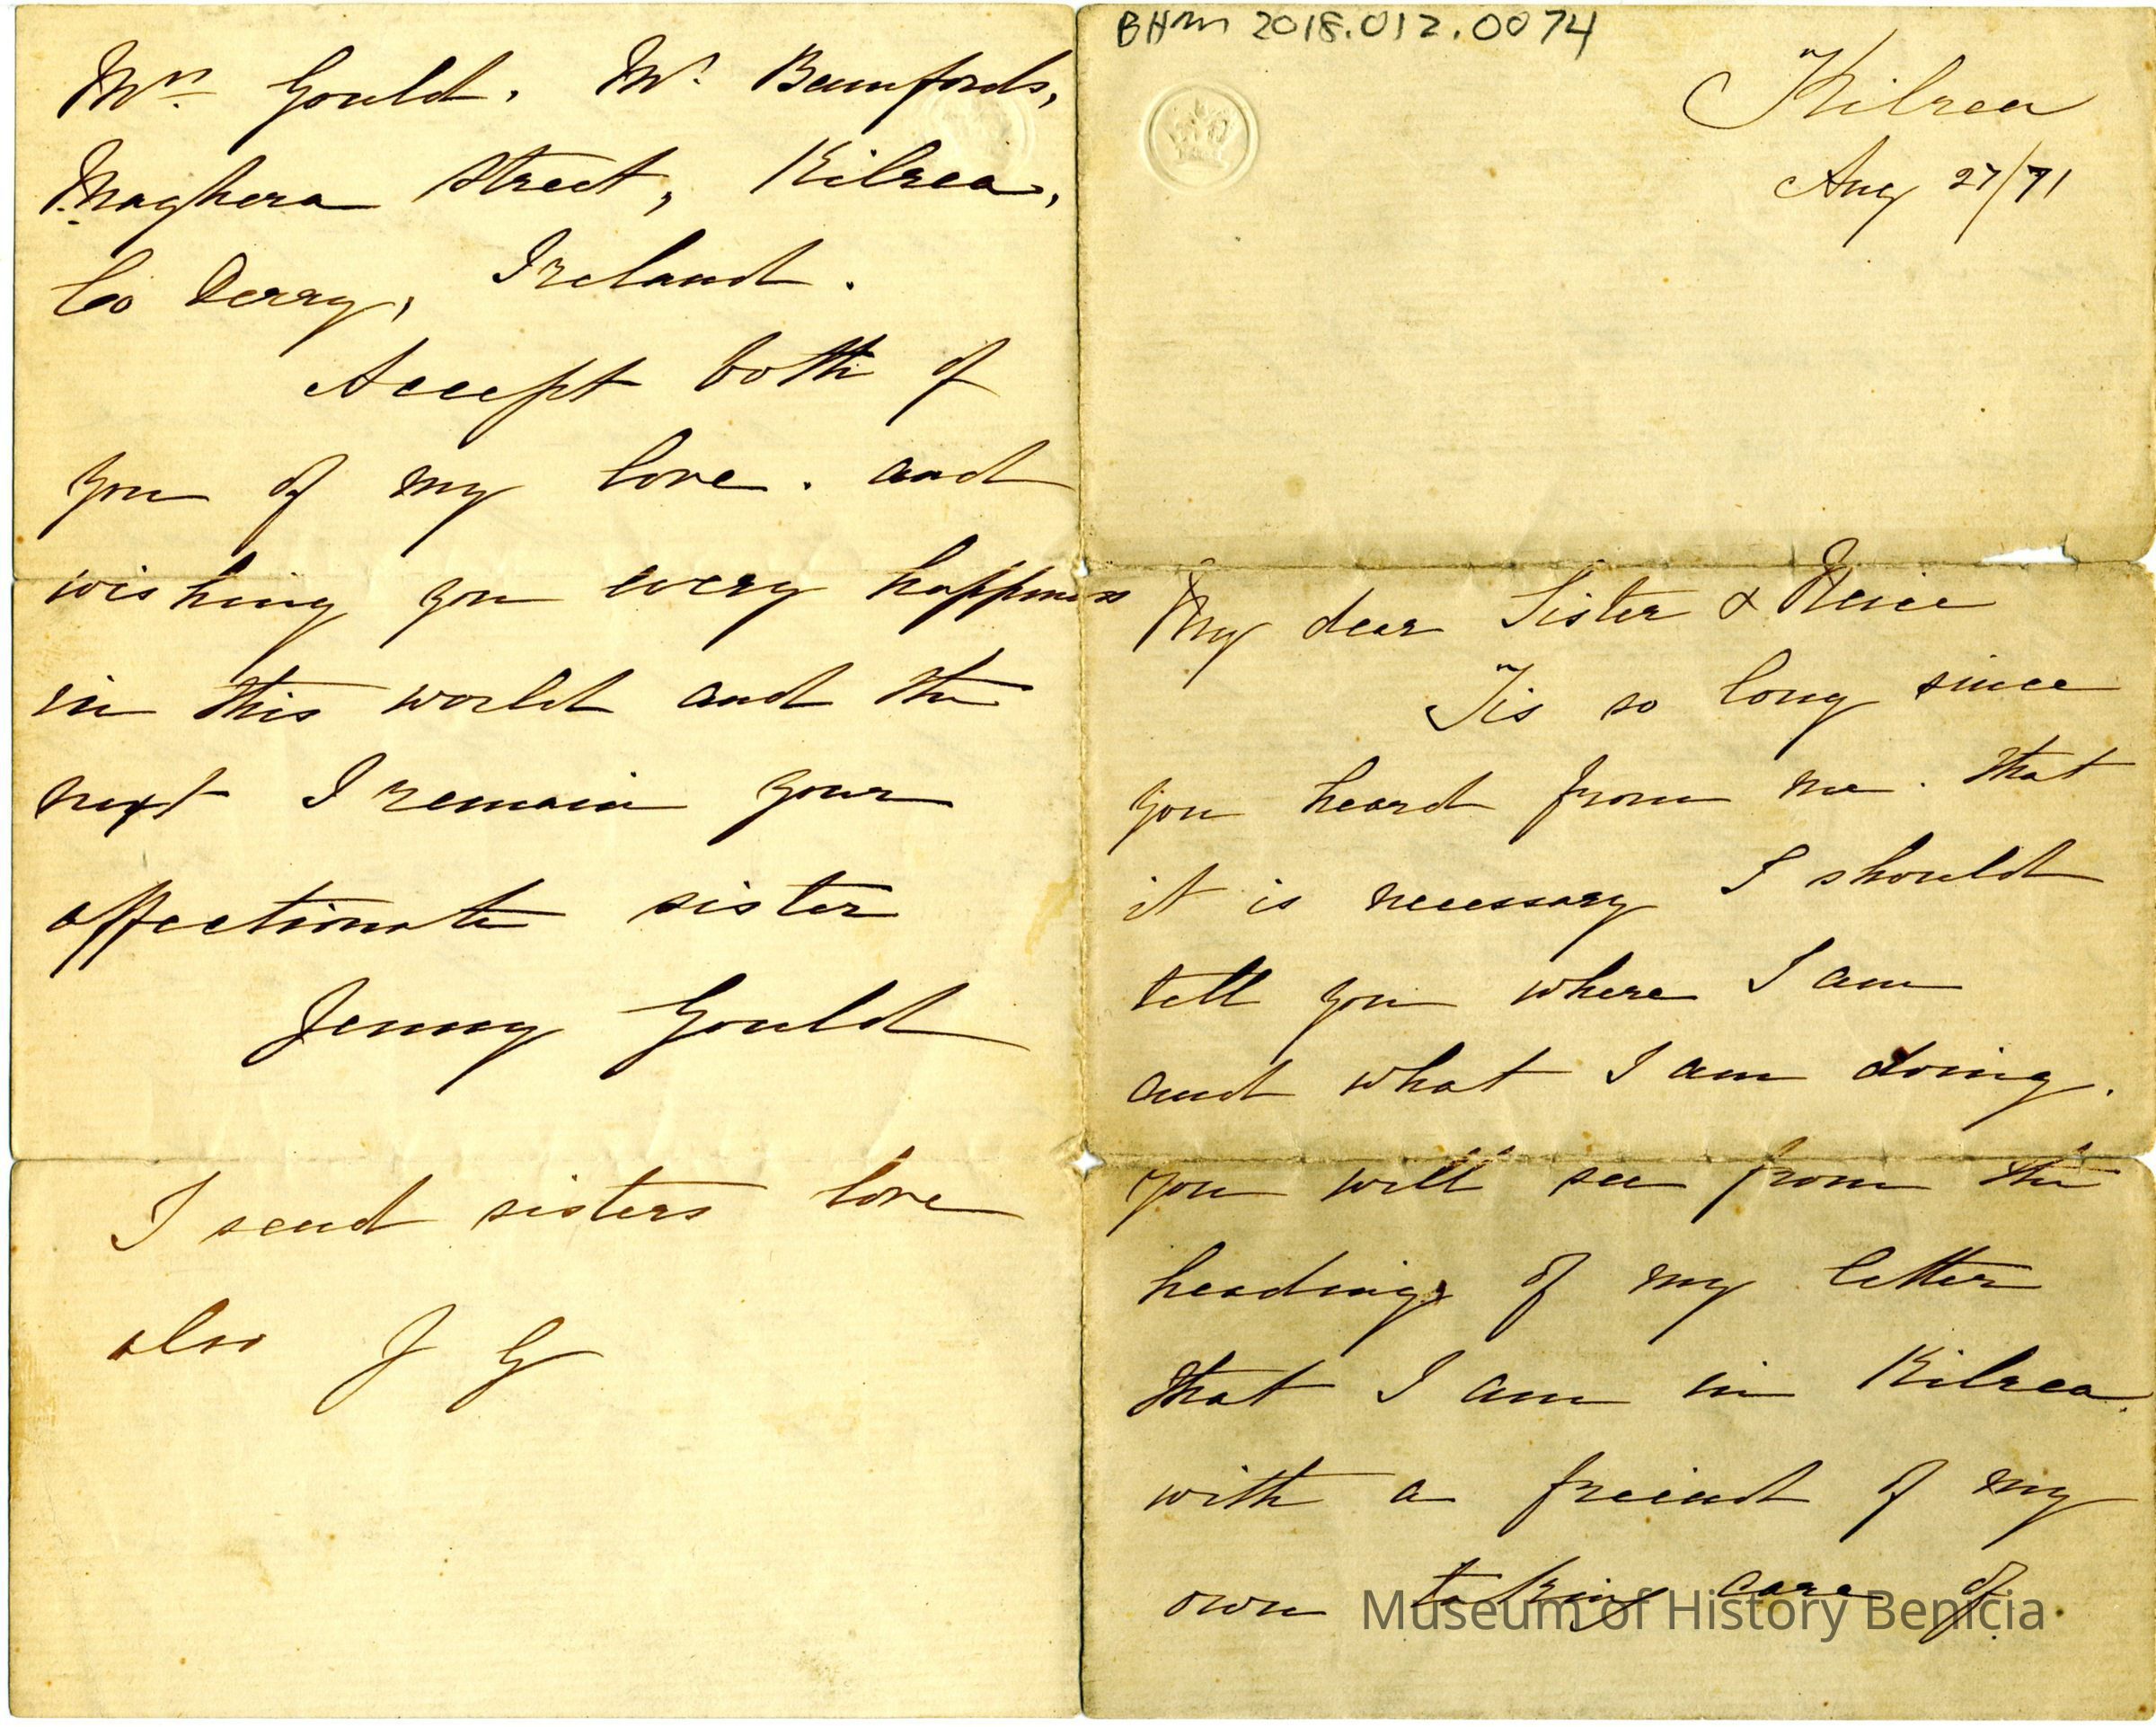 BHM 2018.012.0074
Kilrea
Aug 27/71
My dear Sister & Neice
Tis so long since
you heard from me. that
it is necessary I should
tell you where I am
and what I am doing.
you will see from the
heading of my letter
that I am in Kilrea.
with a freind of my
own taking care of
Mrs. Gould. Mr. Bamfords,
Maghera street, Kilrea,
Co Derry, Ireland.
Accept both of
you of my love. and
wishing you every happiness
in this world and the
next I remain your
affectionate sister
Jenny Gould
I send sisters love
also J G
Museum of History Benicia